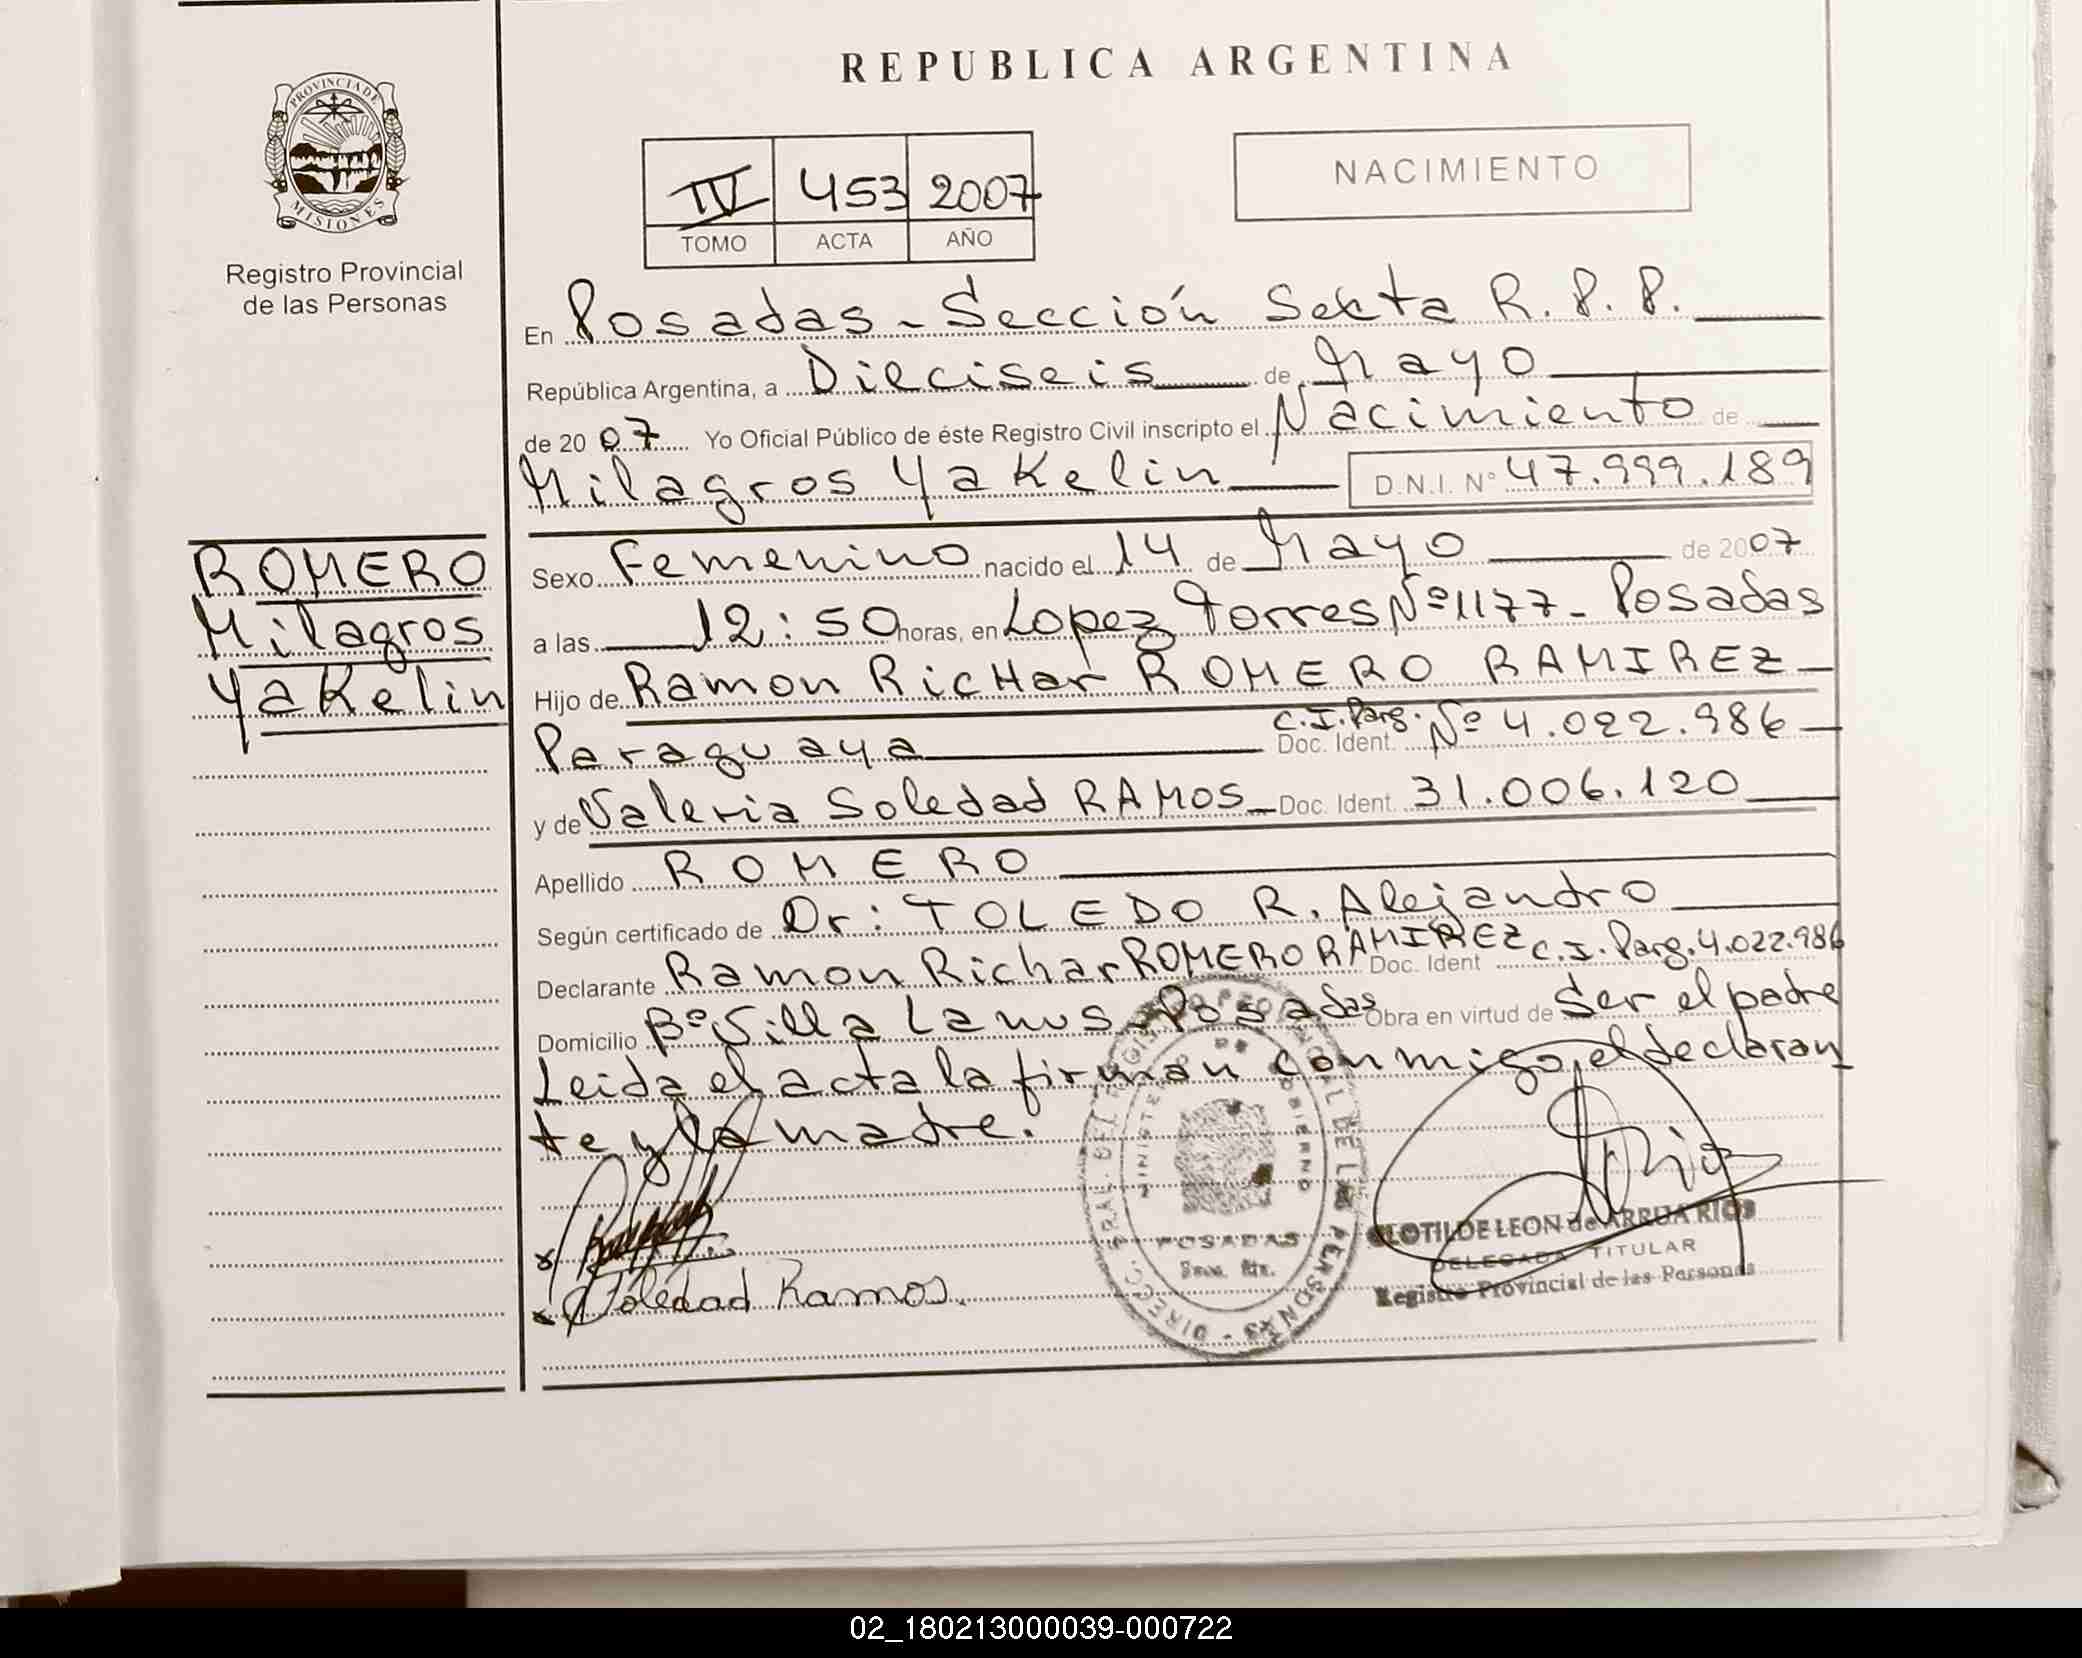 REPUBLICA ARGENTINA
PROVINCIA DE MISIONES
Registro Provincial
de las Personas
IV 453 2007
TOMO ACTA AÑO
NACIMIENTO
En Posadas - Sección Sexta R.P.P.
República Argentina, a Dieciseis de Mayo
de 2007 Yo Oficial Público de éste Registro Civil inscripto el Nacimiento de
Milagros Yakelin D.N.I. Nº 47.999.189
ROMERO
Milagros
Yakelin
Sexo Femenino nacido el 14 de Mayo de 2007
a las 12:50 horas, en Lopez Torres Nº 1177 - Posadas
Hijo de Ramon RicHar ROMERO RAMIREZ
Paraguaya C.I. Parg. Doc. Ident. Nº 4.022.986
y de Valeria Soledad RAMOS Doc. Ident. 31.006.120
Apellido ROMERO
Según certificado de Dr: TOLEDO R. Alejandro
Declarante Ramon Richar ROMERO RAMIREZ Doc. Ident C.I. Parg. 4.022.986
Domicilio Bº Villa Lanus - Posadas Obra en virtud de Ser el padre
Leida el acta la firman conmigo, el declaran
te y la madre.
DIRECC. GRAL. DEL REGISTRO PROVINCIAL DE LAS PERSONAS
MINISTERIO DE GOBIERNO
POSADAS
CLOTILDE LEON de ARRUA RIOS
DELEGADA TITULAR
Registro Provincial de las Personas
Soledad Ramos.
02_180213000039-000722